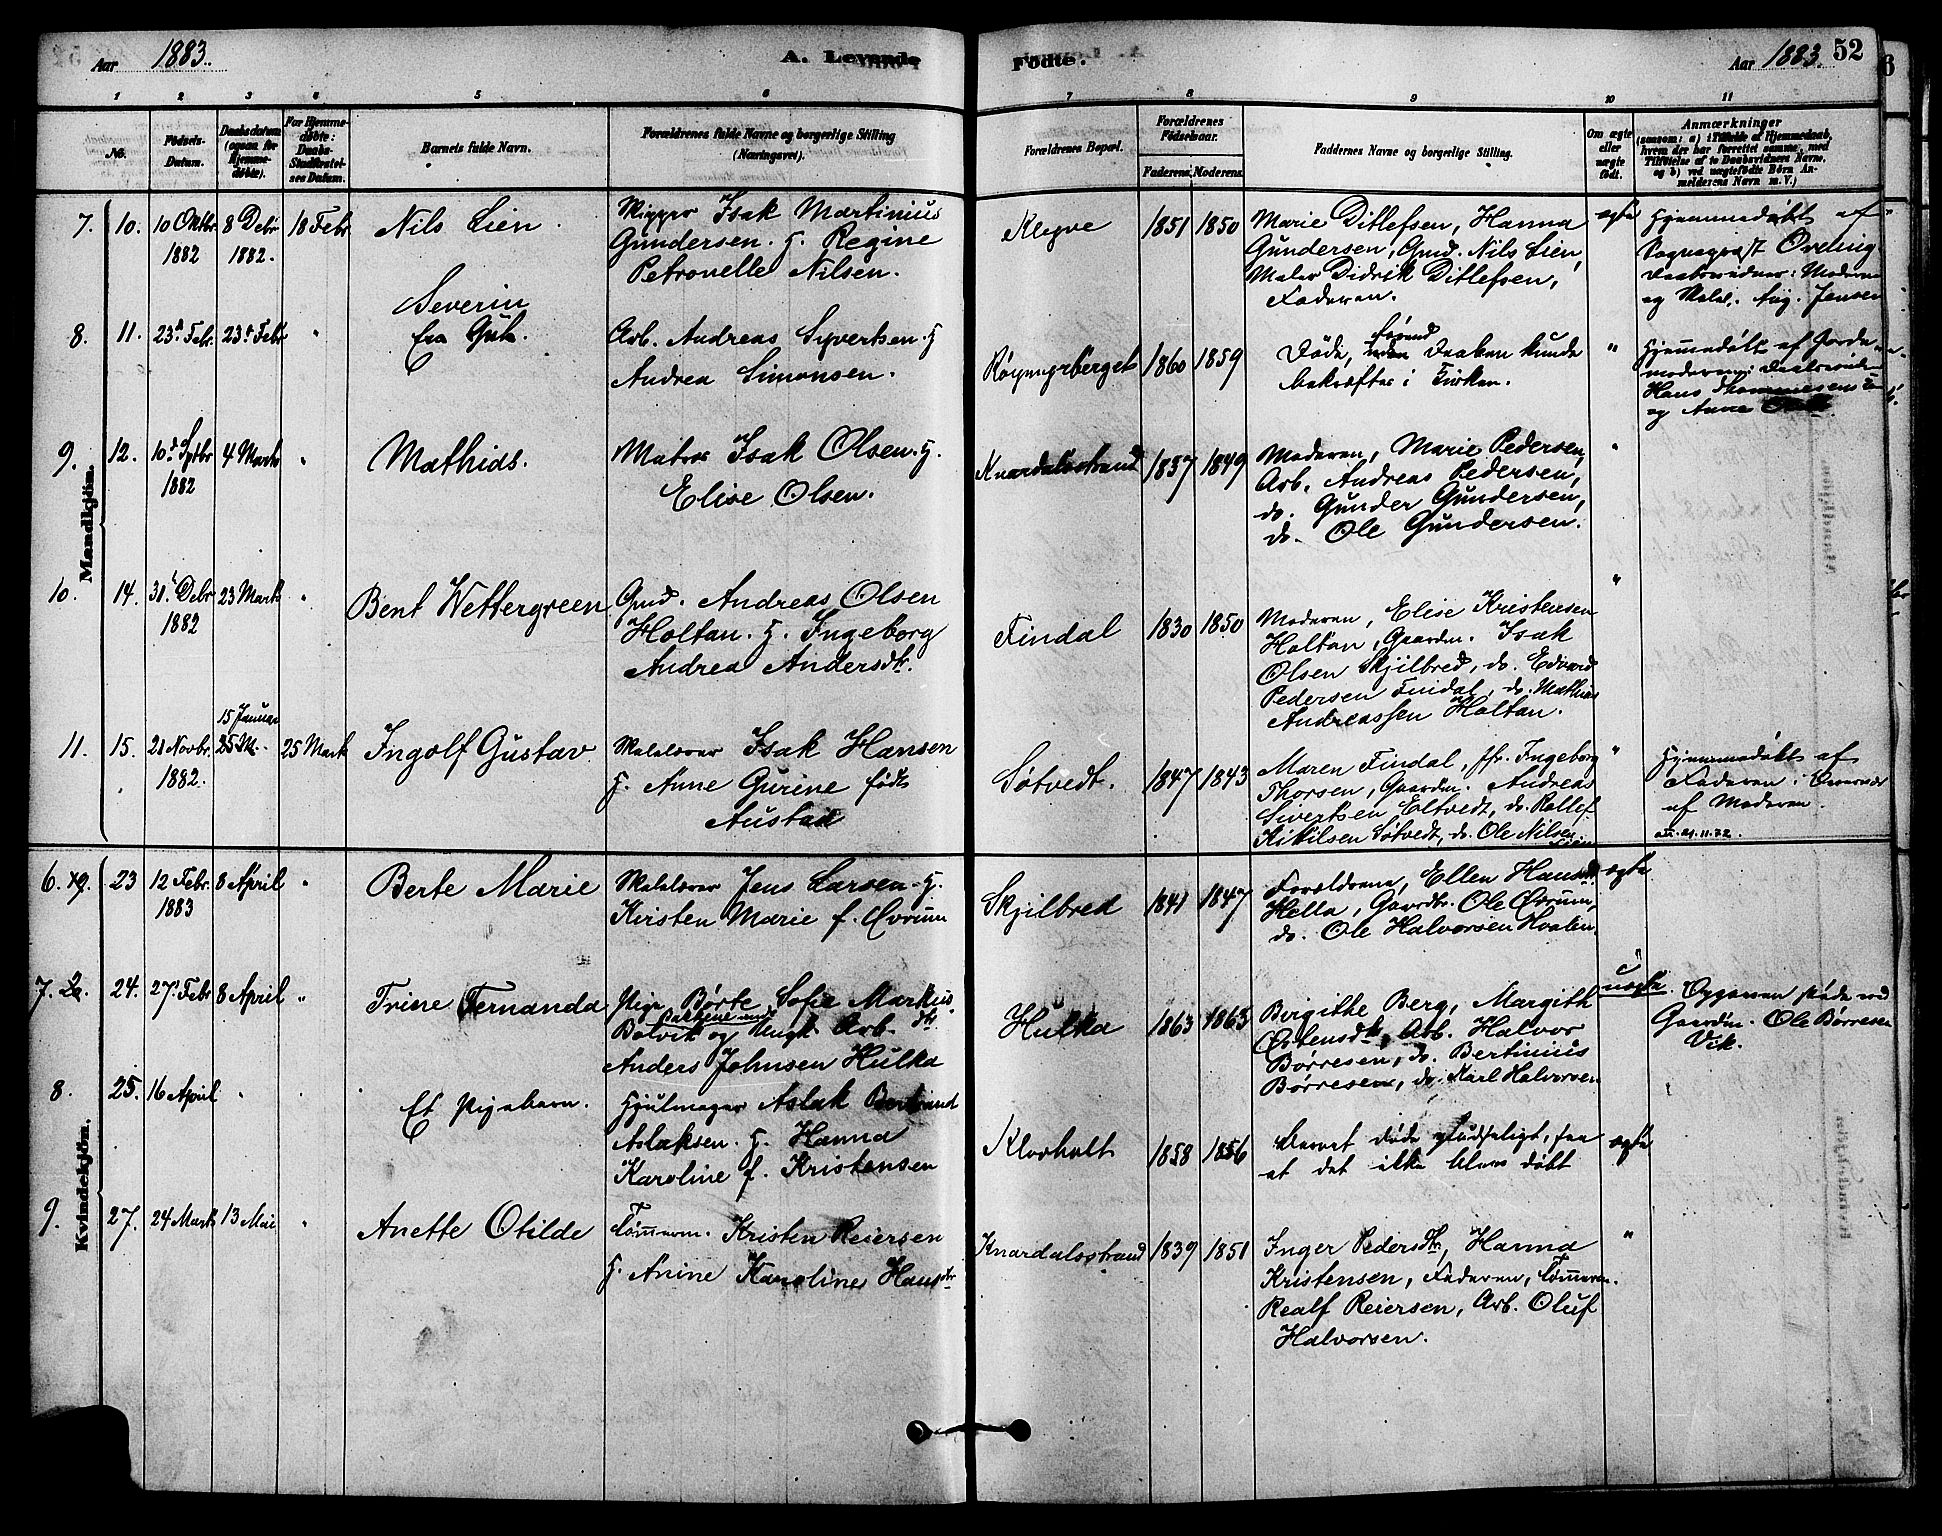 Aar 1883. A. Levende Fødte. Aar 1883. 52
1 2 3 4 5 6 7 8 9 10 11
No. Fødsels-Datum. Daabsdatum (ogsaa for Hjemme-døbte). For Hjemme-døbte: Daabs-Stadfæstel-ses Datum. Barnets fulde Navn. Forældrenes fulde Navne og borgerlige Stilling (Næringsvei). Forældrenes Bopæl. Forældrenes Fødselsaar. Faderens. Moderens. Faddernes Navne og borgerlige Stilling. Om ægte eller uægte født. Anmærkninger
(saasom: a) i Tilfælde af Hjemmedaab,
hvem der har forrettet samme, med
Tilføielse af to Daabsvidners Navne,
og b) ved uægtefødte Børn An-
melderens Navn m. V.)
Mandkjøn.
7. 10. 10 Oktbr 1882 8 Debr 1882. 18 Febr Nils Lien.
Skipper Isak Martinius
Gundersen. H. Regine
Petronelle Nilsen.
Kleyve 1851 1850
Marie Ditlefsen, Hanna
Gundersen, Gmd. Nils Lien,
Maler Didrik Ditlefsen,
Faderen.
ægte
Hjemmedøbt af
Sognepræst Øvding
Daabsvidner: Moderen
og Skolel. Aug. Jensen
8. 11. 23d Febr. 23d Febr "
Severin
Arb. Andreas Syvertsen. H
Andrea Simonsen.
1860 1859
Døde, førend Daaben kunde
bekræftes i Kirken.
"
Hjemmedøbt af Jorde-
moderen; Daabsvidner
Hans
og Anne
9. 12. 10d Sptbr 1882 4 Marts " Mathias.
Matros Isak Olsen. H.
Elise Olsen.
Knardalsstrand 1857 1849
Moderen, Marie Pedersen,
Arb. Andreas Pedersen,
do. Gunder Gundersen,
do. Ole Gundersen.
"
10. 14. 31d Debr 1882 23 Marts " Bent Wettergreen
Gmd. Andreas Olsen
Holtan. H. Ingeborg
Andrea Andersdtr.
Findal 1830 1850
Moderen, Elise Kristensen
Holtan, Gaardm. Isak
Olsen Skjilbred, do. Edvard
Pedersen Findal, do. Mathias
Andreassen Holtan.
"
11. 15. 21 Novbr. 1882. 15 Januar 25 M. 25 Marts Ingolf Gustav
Skolelærer Isak Hansen
H. Anne Gurine født
Austad
Søtvedt. 1847 1843
Maren Findal, Jfr. Ingeborg
Thorsen, Gaardm. Andreas
Sivertsen Eltvedt, do. Rollef
Kittilsen Søtvedt, do. Ole Nilsen
"
Hjemmedøbt af
Faderen i Nærvær
af Moderen.
au. 21.11.72.
Kvindekjøn.
6. 19. 23 12 Febr. 1883 8 April " Berte Marie
Skolelærer Jens Larsen. H.
Kirsten Marie f. Øvrum
Skjilbred 1841 1847
Forældrene, Ellen Hansdtr
Hella, Gaardbr. Ole Øvrum,
do. Ole Halvorsen Hvalen.
ægte
7. 24. 27d Febr 8 April " Trine Fernanda
Pige Børte Sofie Markusdtr.
Bakkene under
Bolvik og Ungk. Arb.
Anders Johnsen Hulka
Hulka 1863 1863
Birgithe Berg, Margith
Østensdtr, Arb. Halvor
Børresen, do. Bertinius
Børresen, do. Karl Halvorsen
uægte.
Opgaven skede ved
Gaardm. Ole Børresen
Vik.
8. 25. 16 April " Et Pigebarn.
Hjulmager Aslak Bertrand
Aslaksen. H. Hanna
Karoline f. Kristensen
Klovholt 1858 1856
Barnet døde pludseligt, saa
at det ikke blev døbt
ægte
9. 27. 24 Marts 13 Mai " Anette Otilde
Tømmerm. Kristen Reiersen
H. Anine Karoline Hansdtr
Knardalsstrand 1839 1851
Inger Pedersdtr, Hanna
Kristensen, Faderen, Tømmerm.
Realf Reiersen, Arb. Oluf
Halvorsen.
"